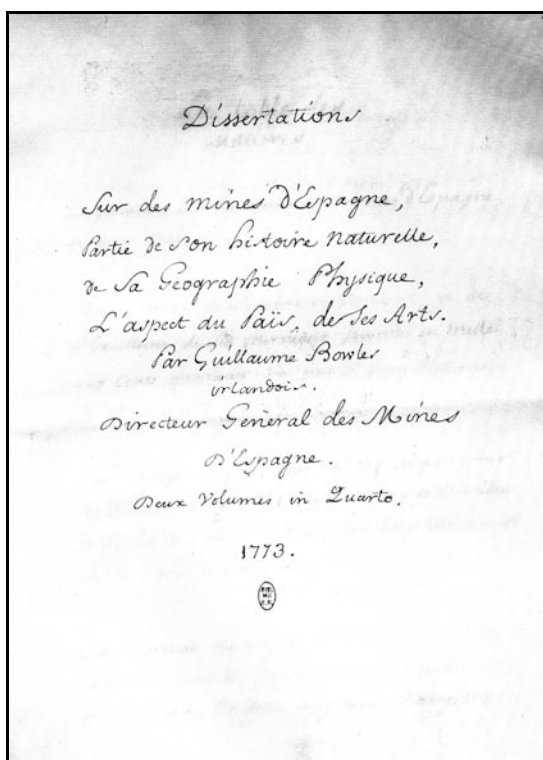 Dissertations
Sur des mines d'Espagne,
Partie de son histoire naturelle,
de Sa Geographie Physique,
L'aspect du Païs, de Ses Arts.
Par Guillaume Bowles
irlandois.
Directeur General des Mines
D'Espagne.
Deux Volumes in Quarto.
1773.